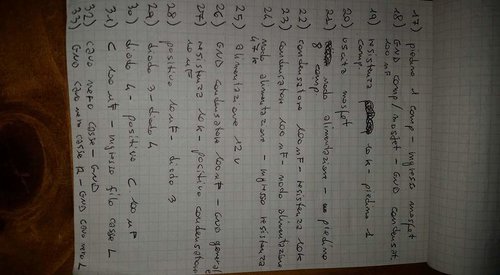 17) piedino 1 comp - ingresso mosfet
18) GND comp/mosfet - GND condensat.
100 nF
19) resistenza 10k - piedino 1
20) uscita mosfet
21) nodo alimentazione - piedino
8 comp
22) condensatore 100 nF - resistenza 10k
23) condensatore 100 nF - nodo alimentazione
24) nodo alimentazione - ingresso resistenza
47
25) alimentazione 12 V
26) GND condensatore 100 nF - GND generale
27) resistenza 10k - positivo condensatore
10 mF
28) positivo 10 mF - diodo 3
29) diodo 3 - diodo 4
30) diodo 4 - positivo C 100 mF
31) C 100 mF - ingresso filo casse L
32) cavo nero casse - GND
33) GND cavo nero casse R - GND cavo nero L